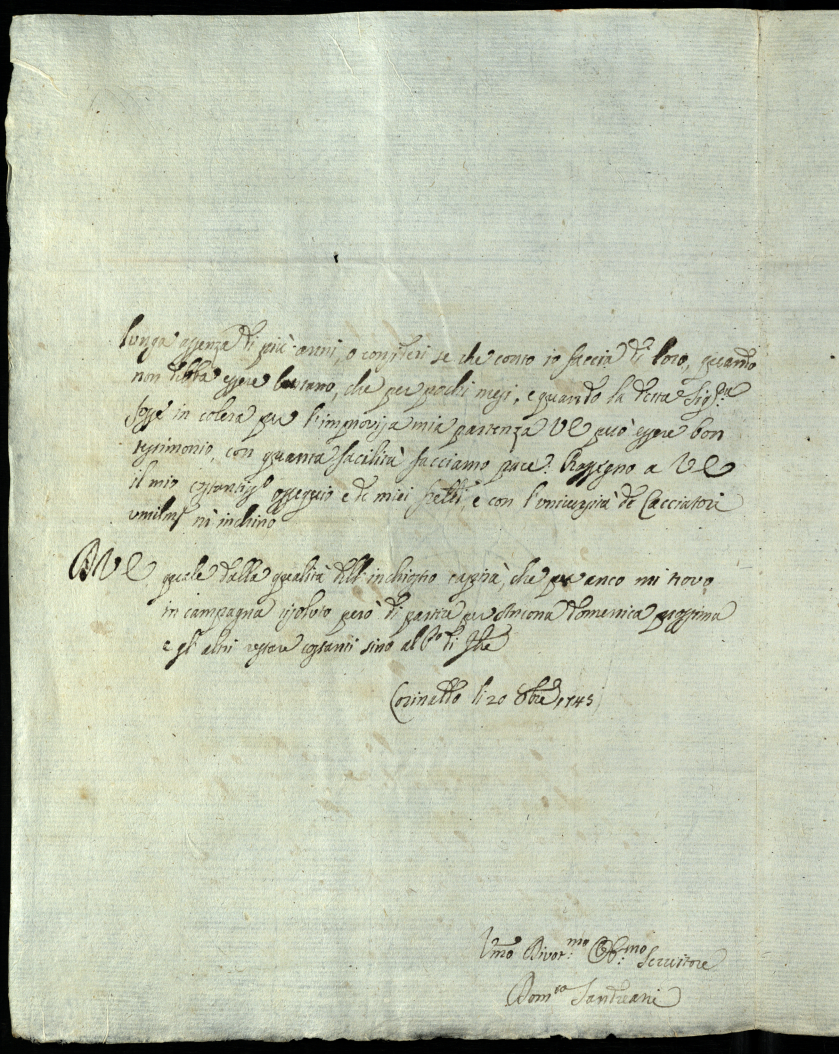 lunga assenza di più anni, o consideri se che conto io faccia di loro, quando
non debba essere lontano, che per pochi mesi, e quando la detta Sig:ra
fosse in colera per l'improvisa mia partenza VE può essere bon
testimonio, con quanta facilità facciamo pace. Rassegno a VE
il mio costantiss:o ossequio e de miei fratelli, e con l'universita de Cacciatori
umilm:te m'inchino
VE quale dalla qualità dell'inchiostro capirà, che per anco mi trovo
in campagna risoluto però di partir per Ancona domenica prossima
e gl'altri restare costanti sino al P:o di 9bre
Corinaldo li 20 8bre 1743
Vmo Divot:mo Obb:mo Servitore
Dom:co